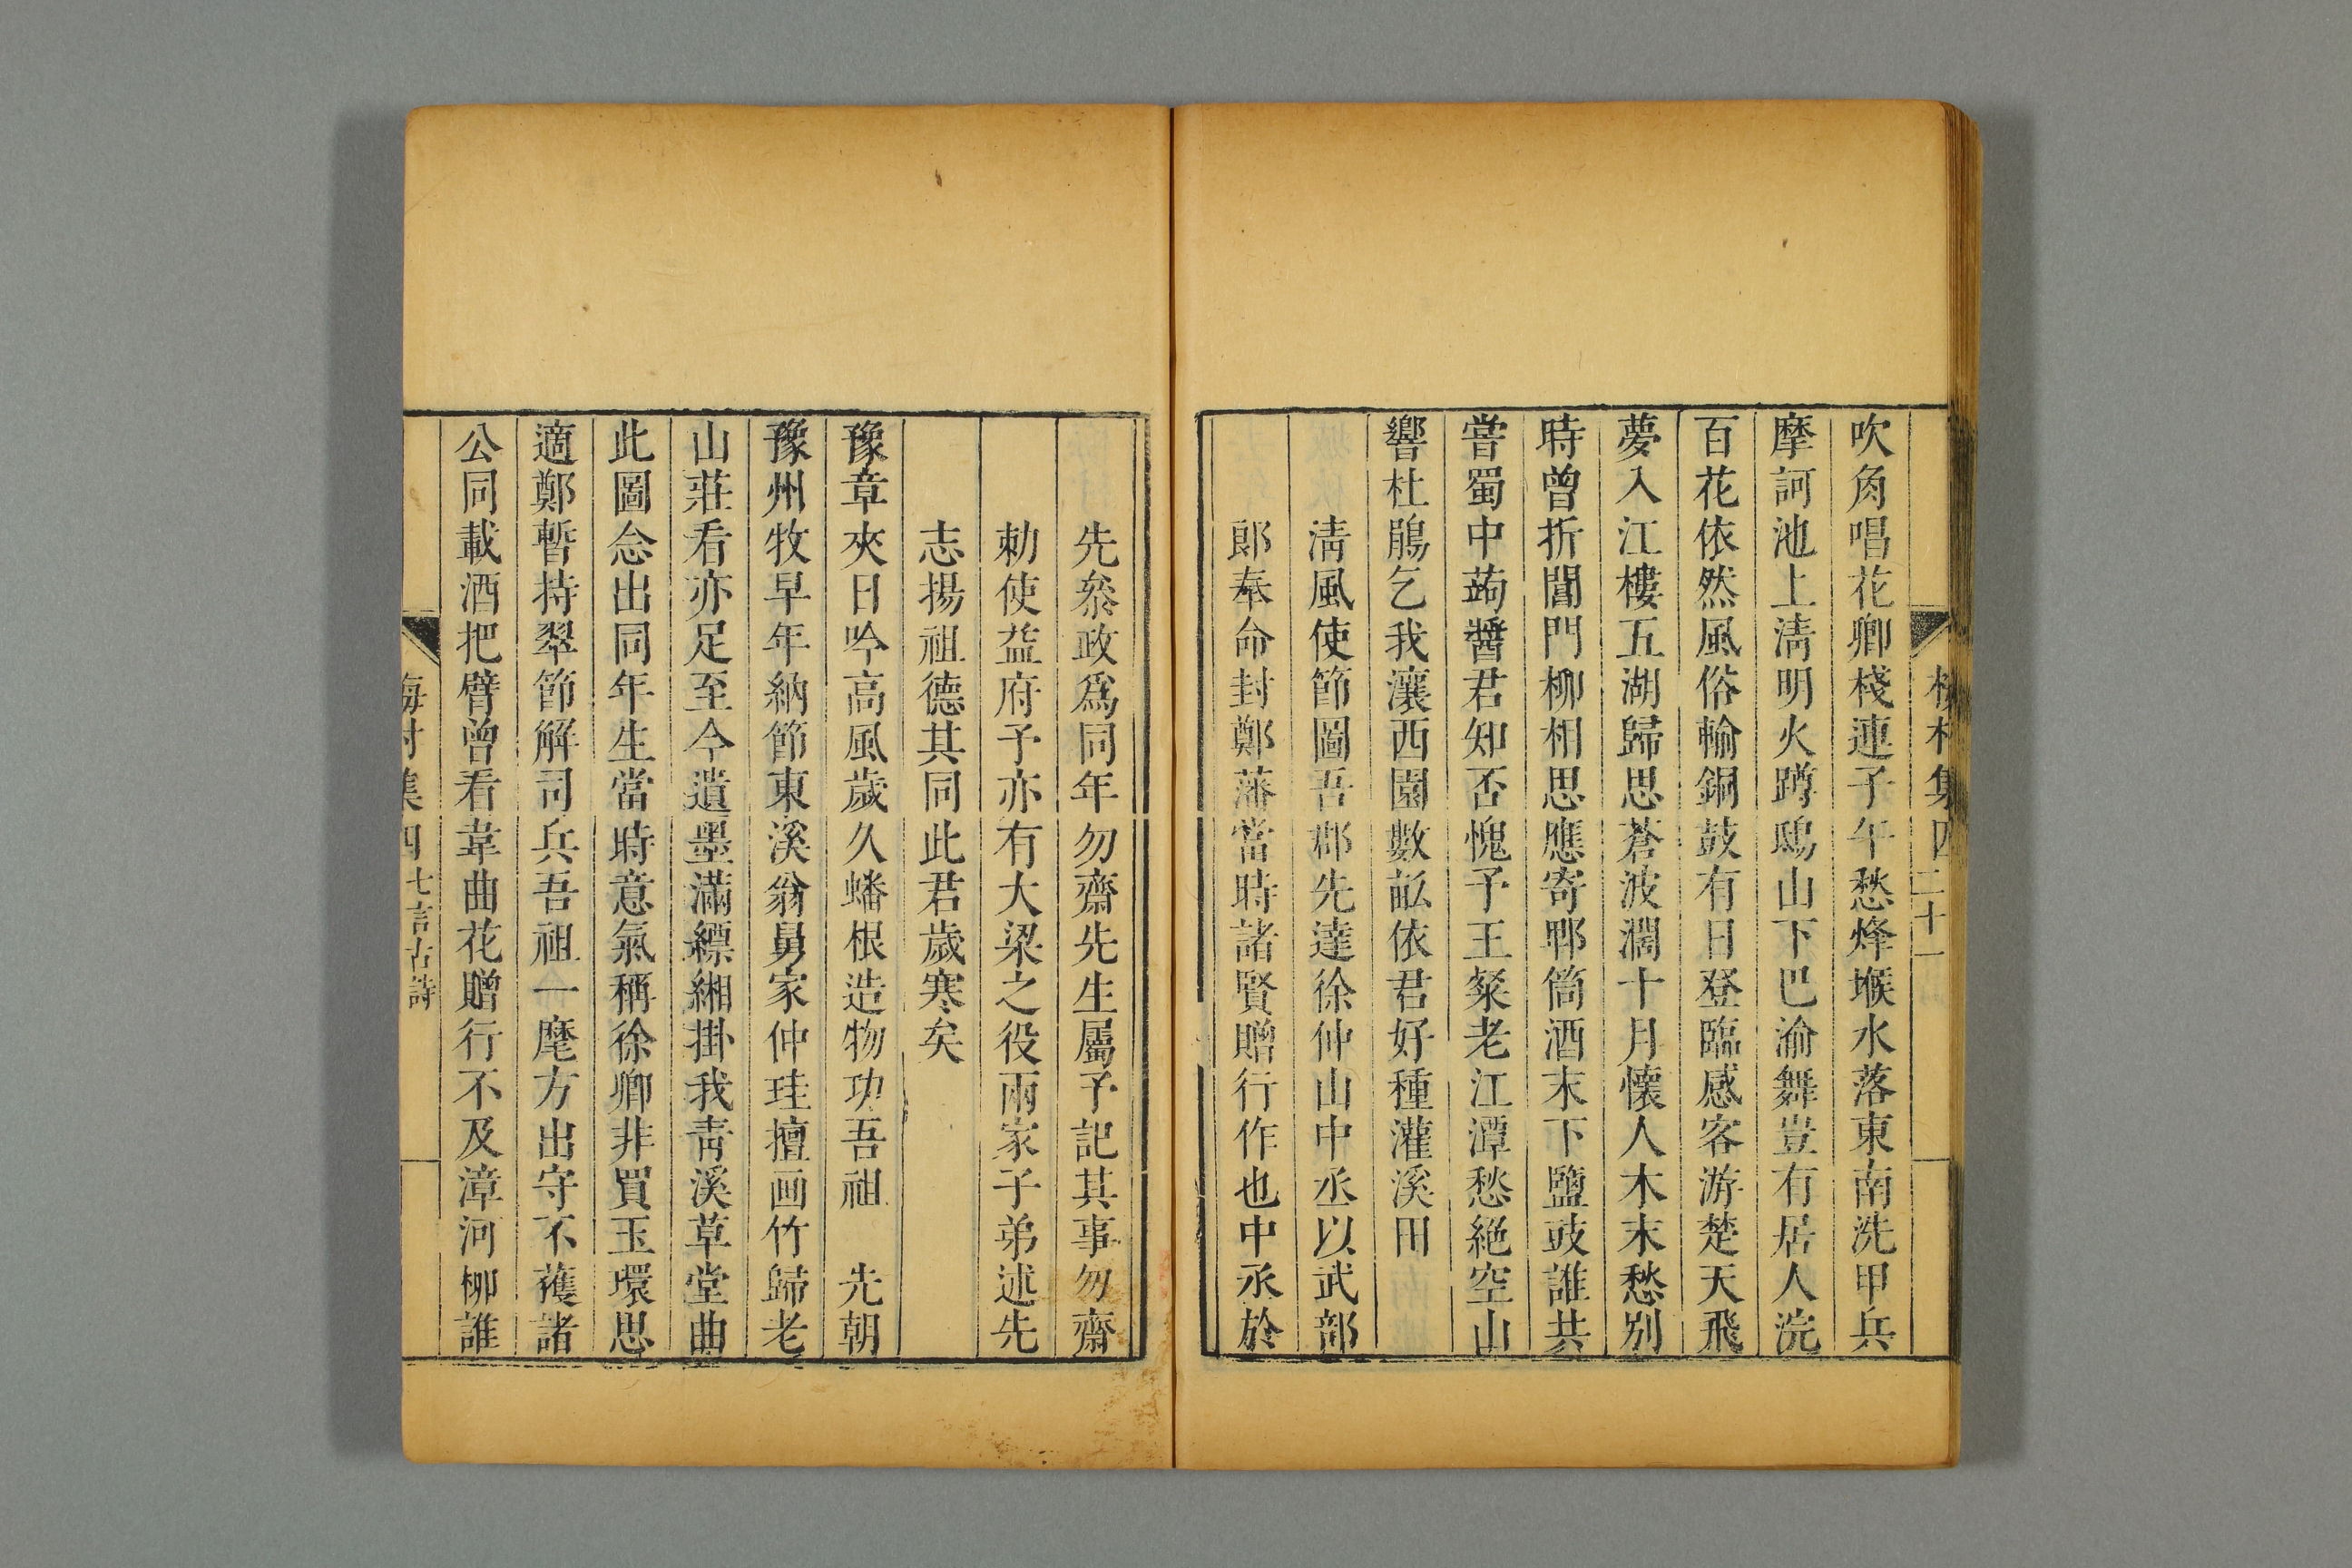 梅村集四 二十一
吹角唱花卿棧連子午愁烽堠水落東南洗甲兵
摩訶池上清明火蹲鴟山下巴渝舞豈有居人浣
百花依然風俗輸銅鼓有日登臨感客游楚天飛
夢入江樓五湖歸思蒼波濶十月懷人木末愁别
時曾折閶門柳相思應寄郫筒酒末下鹽豉誰共
嘗蜀中蒟醬君知否愧予王粲老江潭愁絕空山
響杜鵑乞我瀼西園數畝依君好種灌溪田
清風使節圖吾郡先達徐仲山中丞以武部
郎奉命封鄭藩當時諸賢贈行作也中丞於
先叅政爲同年勿齋先生屬予記其事勿齋
勅使益府予亦有大梁之役兩家子弟述先
志揚祖德其同此君歲寒矣
豫章夾日吟高風歲久蟠根造物功吾祖 先朝
豫州牧早年納節東溪翁舅家仲珪擅画竹歸老
山莊看亦足至今遺墨滿縹緗掛我靑溪草堂曲
此圖念出同年生當時意氣稱徐卿非買玉環思
適鄭暫持翠節解司兵吾祖一麾方出守不獲諸
公同載酒把臂曾看韋曲花贈行不及漳河柳誰
梅村集四 七言古詩